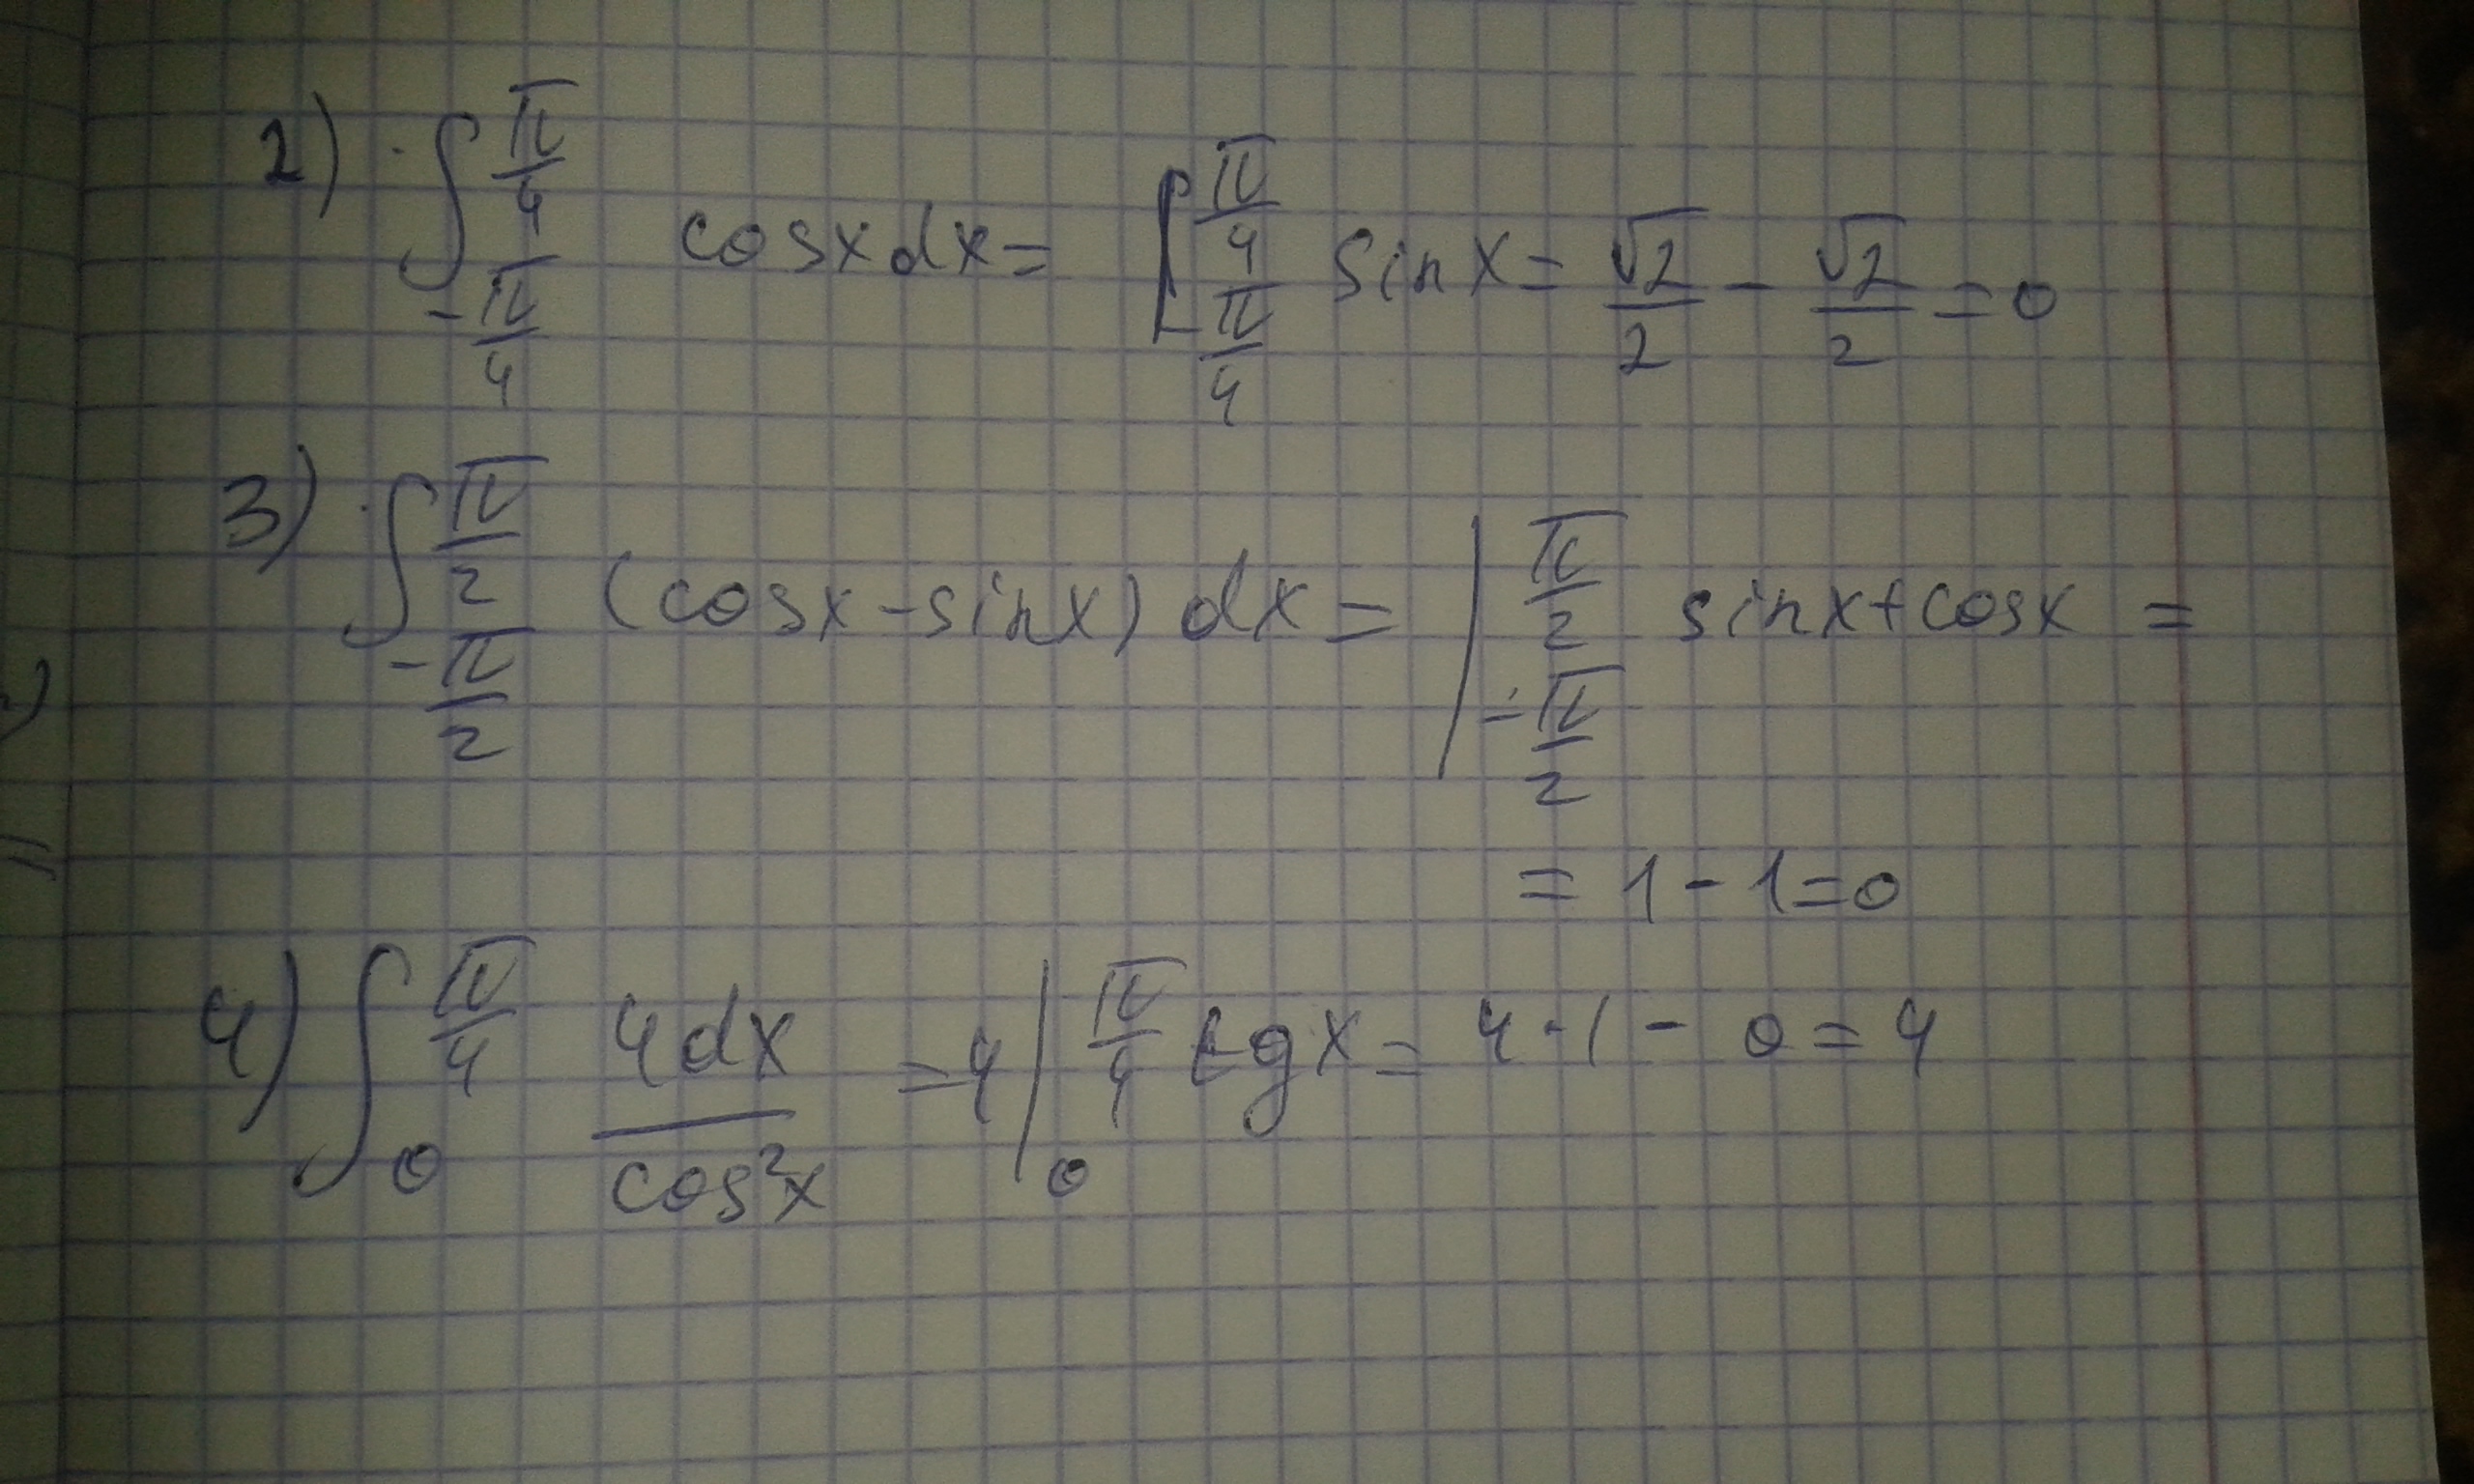 2) ∫_{-π/4}^{π/4} cosxdx = [_{-π/4}^{π/4} sinx = √2/2 - √2/2 = 0
3) ∫_{-π/2}^{π/2} (cosx-sinx) dx = |_{-π/2}^{π/2} sinx+cosx =
= 1-1=0
4) ∫_0^{π/4} 4dx/cos²x = 4 |_0^{π/4} tgx = 4·1 - 0 = 4